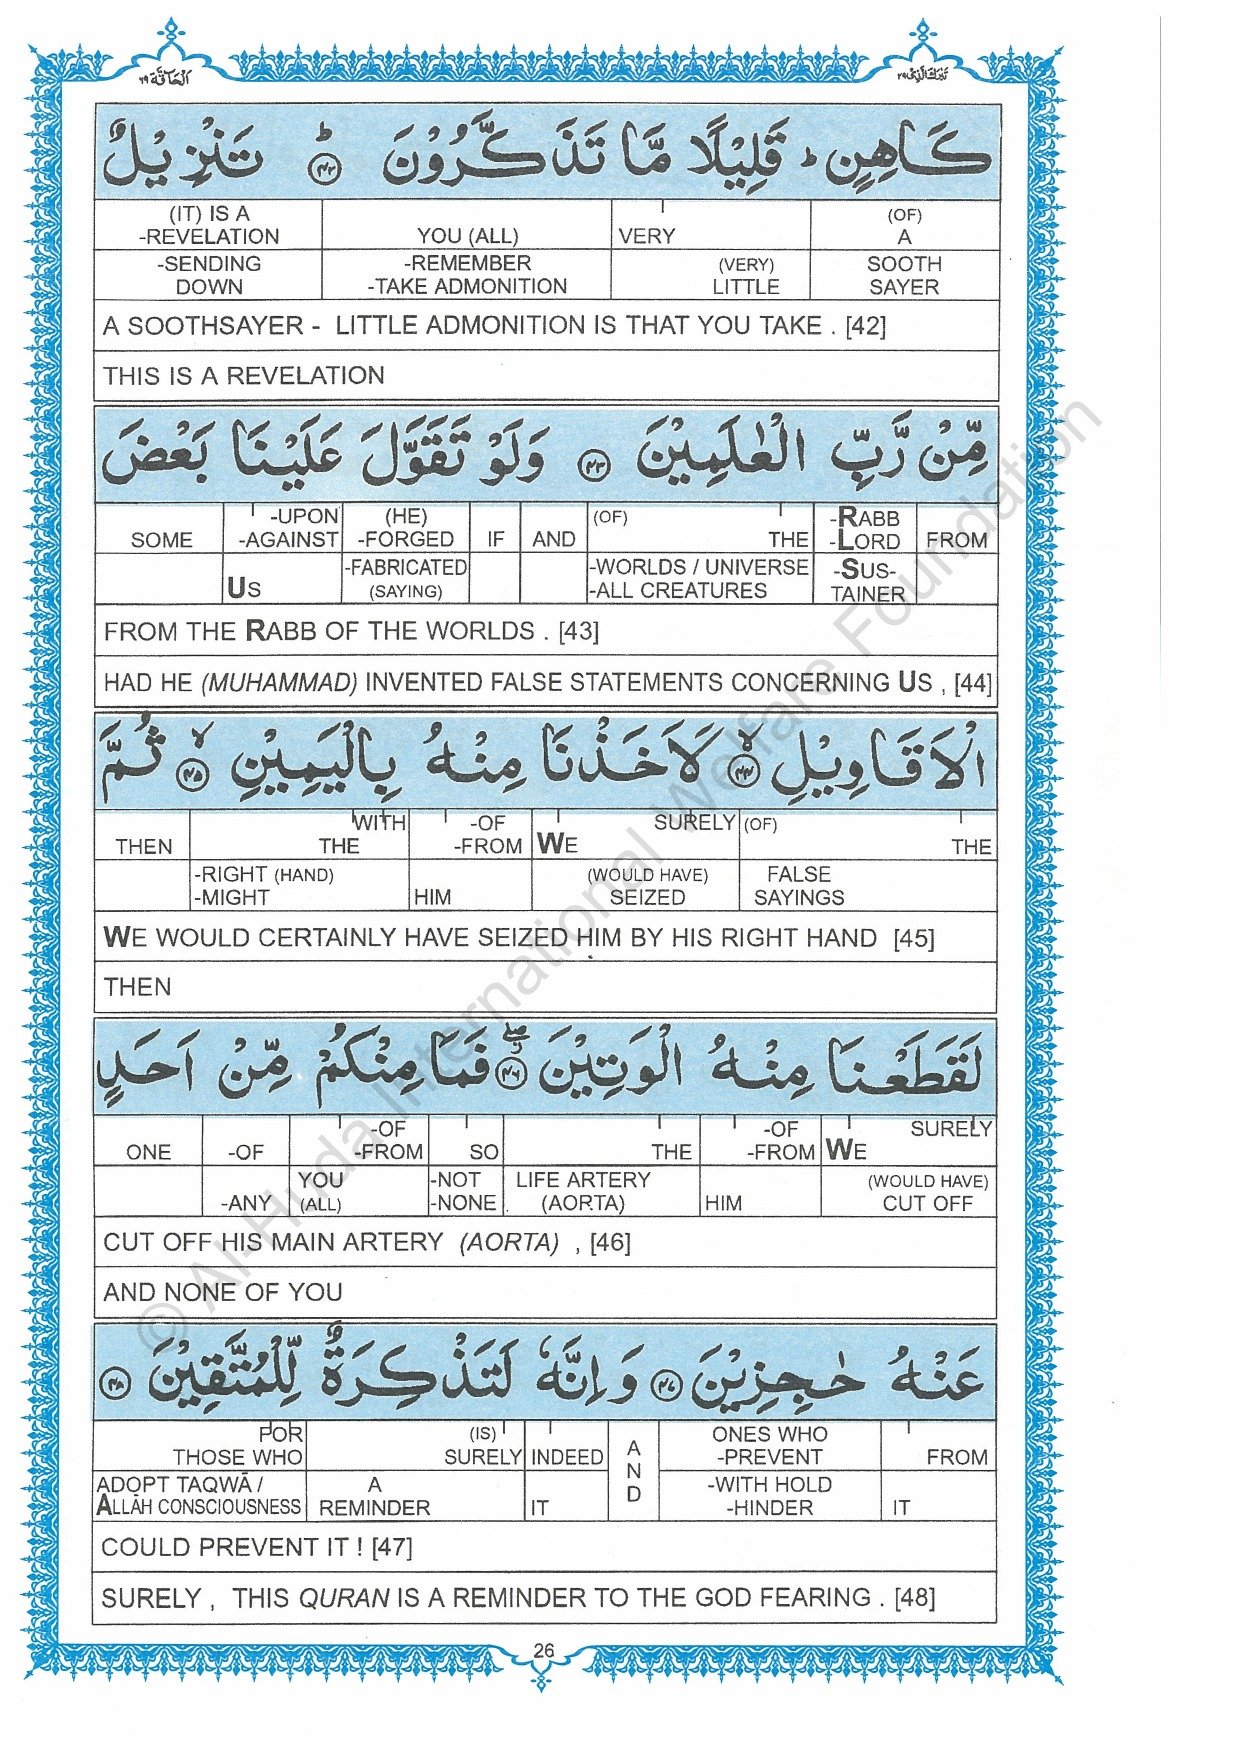 الحآقة ٦٩
تبرك الذى ٢٩
كَاهِنٍ ؕ قَلِيْلًا مَّا تَذَكَّرُوْنَ ؕ ۝٤٢ تَنْزِيْلٌ
(IT) IS A -REVELATION YOU (ALL) VERY (OF) A
-SENDING DOWN -REMEMBER -TAKE ADMONITION (VERY) LITTLE SOOTH SAYER
A SOOTHSAYER - LITTLE ADMONITION IS THAT YOU TAKE . [42]
THIS IS A REVELATION
مِّنْ رَّبِّ الْعٰلَمِيْنَ ۝٤٣ وَلَوْ تَقَوَّلَ عَلَيْنَا بَعْضَ
SOME -UPON -AGAINST (HE) -FORGED IF AND (OF) THE -RABB -LORD FROM
US -FABRICATED (SAYING) -WORLDS / UNIVERSE -ALL CREATURES -SUS- TAINER
FROM THE RABB OF THE WORLDS . [43]
HAD HE (MUHAMMAD) INVENTED FALSE STATEMENTS CONCERNING US , [44]
الْاَقَاوِيْلِ ۙ ۝٤٤ لَاَخَذْنَا مِنْهُ بِالْيَمِيْنِ ۙ ۝٤٥ ثُمَّ
THEN WITH THE -OF -FROM WE SURELY (OF) THE
-RIGHT (HAND) -MIGHT HIM (WOULD HAVE) SEIZED FALSE SAYINGS
WE WOULD CERTAINLY HAVE SEIZED HIM BY HIS RIGHT HAND [45]
THEN
لَقَطَعْنَا مِنْهُ الْوَتِيْنَ ۝٤٦ فَمَا مِنْكُمْ مِّنْ اَحَدٍ
ONE -OF -OF -FROM SO THE -OF -FROM WE SURELY
-ANY YOU (ALL) -NOT -NONE LIFE ARTERY (AORTA) HIM (WOULD HAVE) CUT OFF
CUT OFF HIS MAIN ARTERY (AORTA) , [46]
AND NONE OF YOU
عَنْهُ حٰجِزِيْنَ ۝٤٧ وَاِنَّهٗ لَتَذْكِرَةٌ لِّلْمُتَّقِيْنَ ۝٤٨
FOR THOSE WHO (IS) SURELY INDEED AND ONES WHO -PREVENT FROM
ADOPT TAQWĀ / ALLĀH CONSCIOUSNESS A REMINDER IT -WITH HOLD -HINDER IT
COULD PREVENT IT ! [47]
SURELY , THIS QURAN IS A REMINDER TO THE GOD FEARING . [48]
26
© Al-Huda International Welfare Foundation